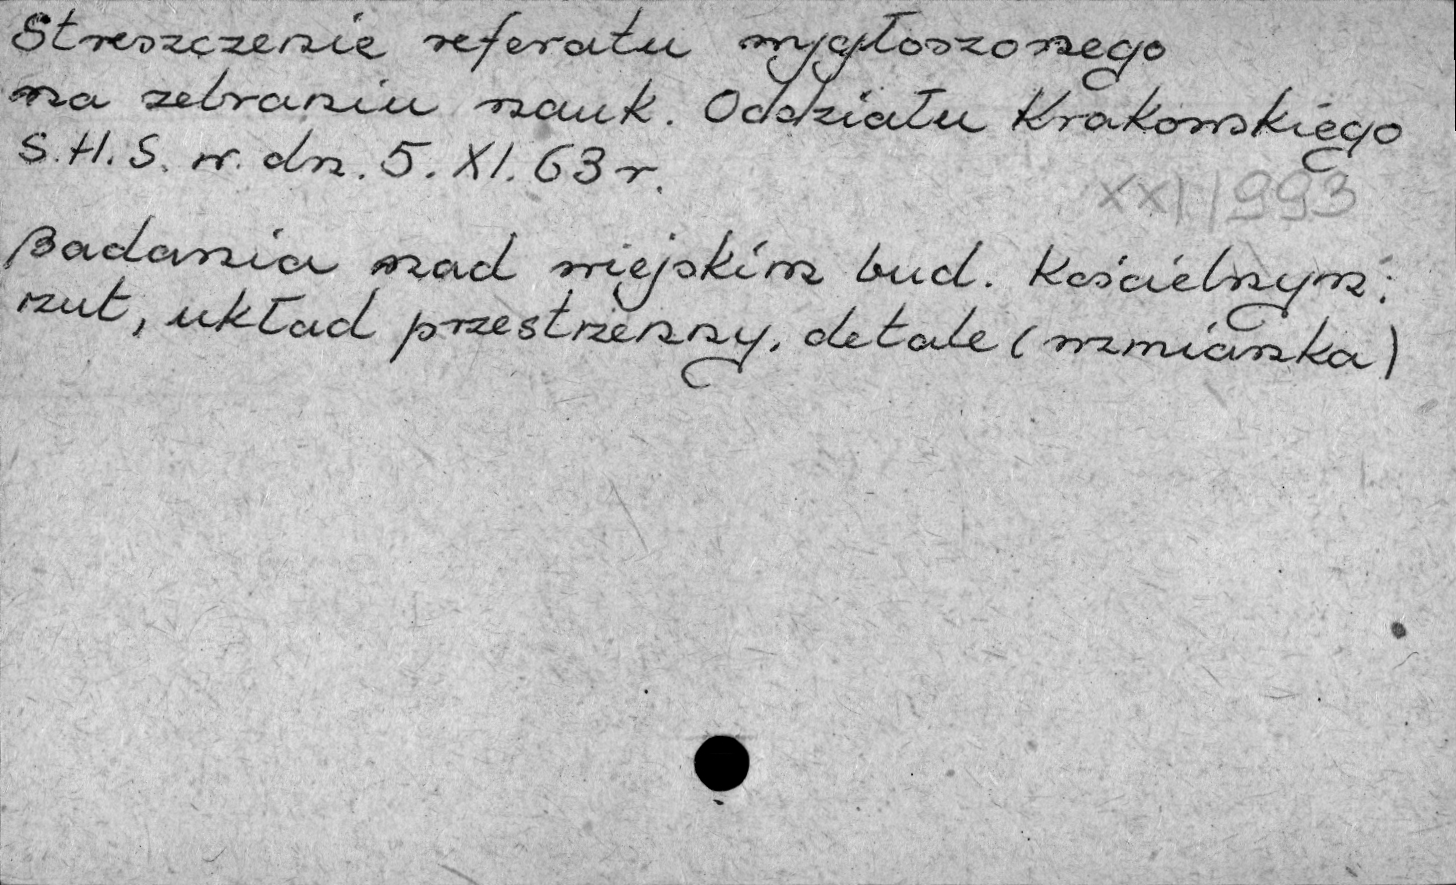 Streszczenie referatu wygłoszonego
na zebraniu nauk. Oddziału Krakowskiego
S.H.S. w. dn. 5. XI. 63 r.
XXI/993
Badania nad wiejskim bud. Kościelnym:
rzut, układ przestrzenny, detale (wzmianka)